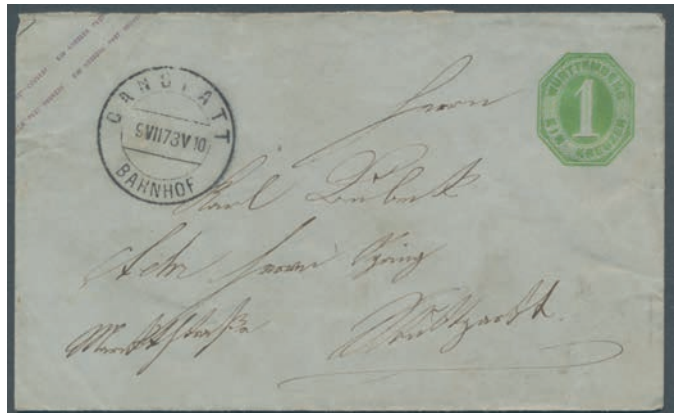 CANSTATT
9VII73V10
BAHNHOF
WÜRTTEMBERG
1
EIN KREUZER
Herrn
Karl
Adr Herrn
Marktstraße
Stuttgart.